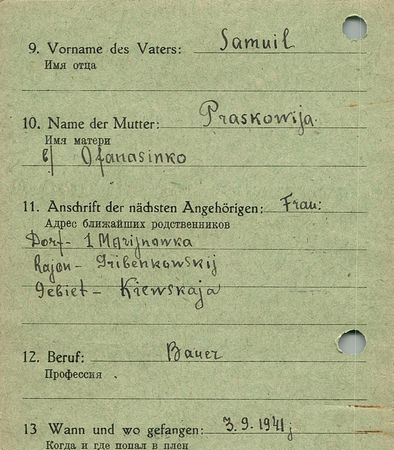 9. Vorname des Vaters: Samuil
Имя отца
10. Name der Mutter: Praskowija
Имя матери
b/ Ofanasinko
11. Anschrift der nächsten Angehörigen: Frau:
Адрес ближайших родственников
Dorf- 1 Marijnowka
Rajon- Gribenkowskij
Gebiet- Kiewskaja
12. Beruf: Bauer
Профессия .
13 Wann und wo gefangen: 3.9.1941 j
Когда и где попал в плен